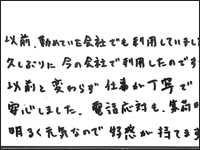 以前、勤めていた会社でも利用していまし
久しぶりに今の会社で利用したのです
以前と変わらず仕事が丁寧で
安心しました。電話応対も、集荷の
明るく元気なので好感が持てます